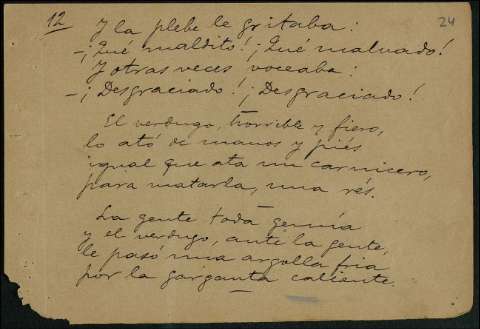 12 Y la plebe le gritaba: 24
–¡Qué maldito! ¡Qué malvado!
Y otras veces voceaba:
–¡Desgraciado! ¡Desgraciado!
El verdugo, horrible y fiero,
lo ató de manos y piés
igual que ata un carnicero,
para matarla, una rés.
La gente toda gemía
y el verdugo, ante la gente,
le pasó una argolla fria
por la garganta caliente.